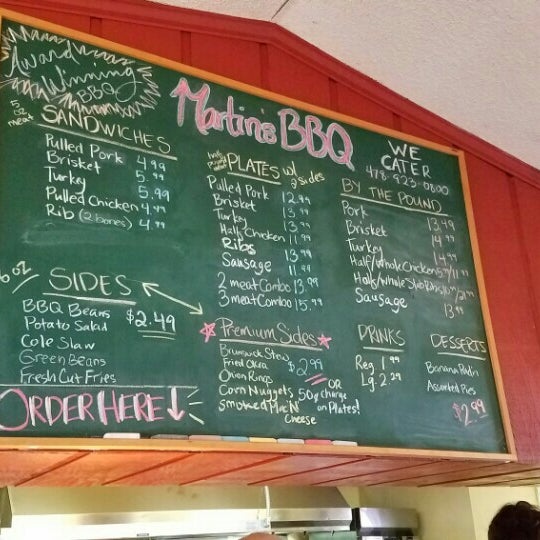 Award
Winning
BBQ
Martin's BBQ
5 oz meat
SANDWICHES
Pulled Pork 4.99
Brisket 5.99
Turkey 5.99
Pulled Chicken 4.99
Rib (2 bones) 4.99
SIDES
BBQ Beans
Potato Salad
Cole Slaw
Green Beans
Fresh Cut Fries
$2.49
ORDER HERE
PLATES w/
2 sides
Pulled Pork 12.99
Brisket 13.99
Turkey 13.99
Half Chicken 11.99
Ribs 13.99
Sausage 11.99
2 meat Combo 13.99
3 meat Combo 15.99
Premium Sides
Brunswick Stew
Fried Okra
Onion Rings
Corn Nuggets
Smoked Mac N'
Cheese
$2.99
OR
50¢ charge
on Plates!
WE
CATER
478-923-0800
BY THE POUND
Pork 13.49
Brisket 14.99
Turkey 14.99
Half/Whole Chicken
Sausage 13.99
DRINKS
Reg 1.99
Lg. 2.29
DESSERTS
Banana Puddin
Assorted Pies
$2.99